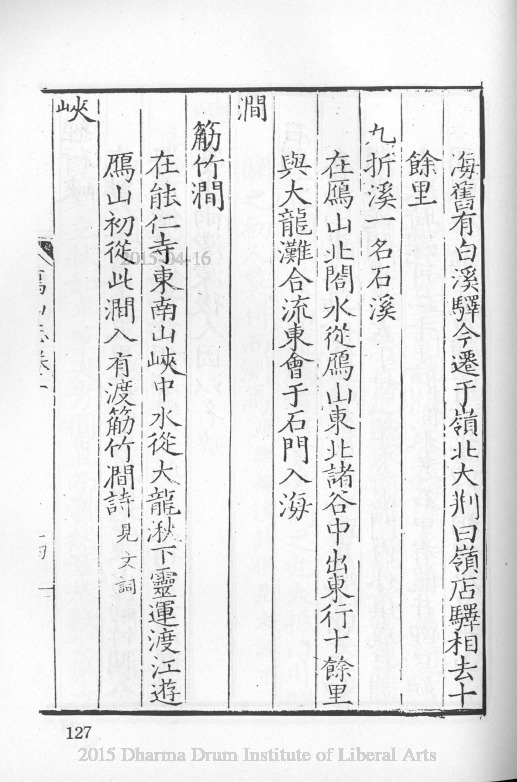 海舊有白溪驛今遷于嶺北大荆曰嶺店驛相去十
餘里
九折溪一名石溪
在鴈山北閤水從鴈山東北諸谷中出東行十餘里
與大龍灘合流東會于石門入海
澗
筋竹澗
在能仁寺東南山峽中水從大龍湫下靈運渡江遊
鴈山初從此澗入有渡筋竹澗詩見文詞
峽
山志卷一
127
2015-04-16
2015 Dharma Drum Institute of Liberal Arts